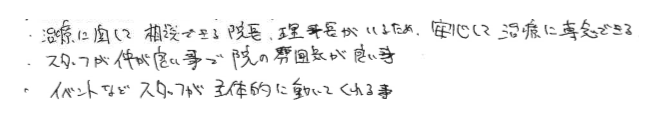 ・治療に関して相談できる院長、理事長がいるため、安心して治療に専念できる
・スタッフが仲が良い事で院の雰囲気が良い事
・イベントなどスタッフが主体的に動いてくれる事